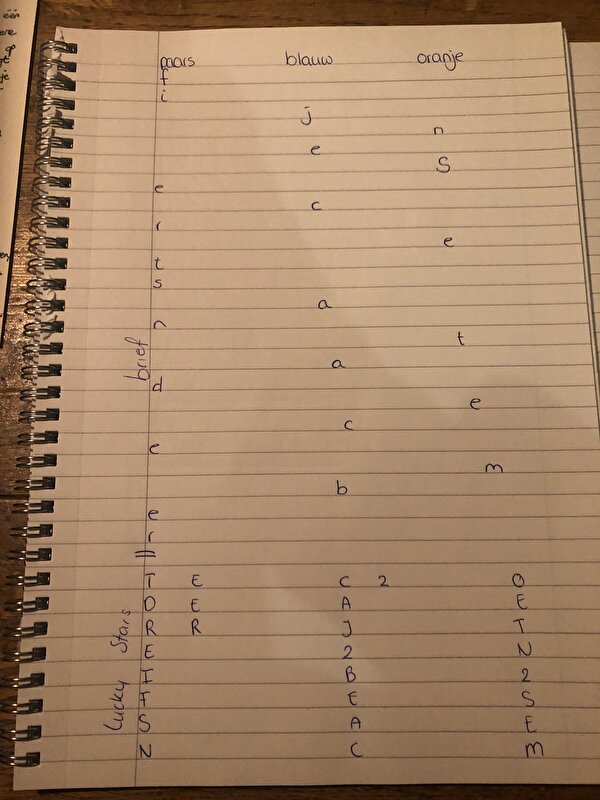 paars blauw oranje
f
i
j
n
e
S
e
c
r
e
t
s
a
n
t
a
d
e
c
e
m
b
e
r
brief
Lucky Stars
T E C 2 O
D E A E
R R J T
E 2 N
I B 2
F E S
S A E
N C M